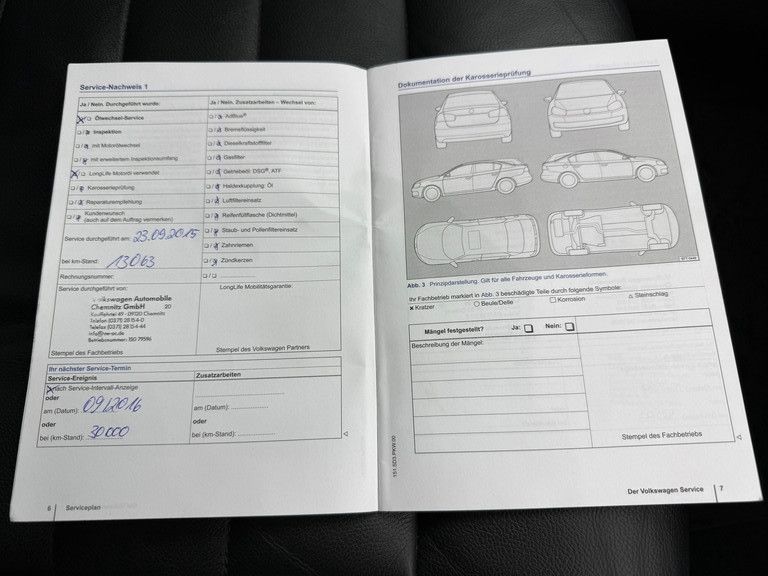 Service-Nachweis 1
Ja / Nein. Durchgeführt wurde:
Ölwechsel-Service
Inspektion
mit Motorölwechsel
mit erweitertem Inspektionsumfang
LongLife Motoröl verwendet
Karosserieprüfung
Reparaturempfehlung
Kundenwunsch
(auch auf dem Auftrag vermerken)
Service durchgeführt am: 23.09.2015
bei km-Stand: 13063
Rechnungsnummer:
Service durchgeführt von:
Volkswagen Automobile
Chemnitz GmbH 20
Kauffahrtei 49 - 09120 Chemnitz
Betriebsnummer: ISO 79596
Stempel des Fachbetriebs
Ja / Nein. Zusatzarbeiten – Wechsel von:
AdBlue®
Bremsflüssigkeit
Dieselkraftstofffilter
Gasfilter
Getriebeöl: DSG®, ATF
Haldexkupplung: Öl
Luftfiltereinsatz
Reifenfüllflasche (Dichtmittel)
Staub- und Pollenfiltereinsatz
Zahnriemen
Zündkerzen
LongLife Mobilitätsgarantie:
Stempel des Volkswagen Partners
Ihr nächster Service-Termin
Service-Ereignis
nach Service-Intervall-Anzeige
oder
am (Datum): 09/2016
oder
bei (km-Stand): 30000
Zusatzarbeiten
am (Datum):
oder
bei (km-Stand):
6 Serviceplan
Dokumentation der Karosserieprüfung
Abb. 3 Prinzipdarstellung. Gilt für alle Fahrzeuge und Karosserieformen.
Ihr Fachbetrieb markiert in Abb. 3 beschädigte Teile durch folgende Symbole:
× Kratzer ○ Beule/Delle □ Korrosion △ Steinschlag
Mängel festgestellt? Ja: Nein:
Beschreibung der Mängel:
Stempel des Fachbetriebs
151.5D3.PKW.00
Der Volkswagen Service 7